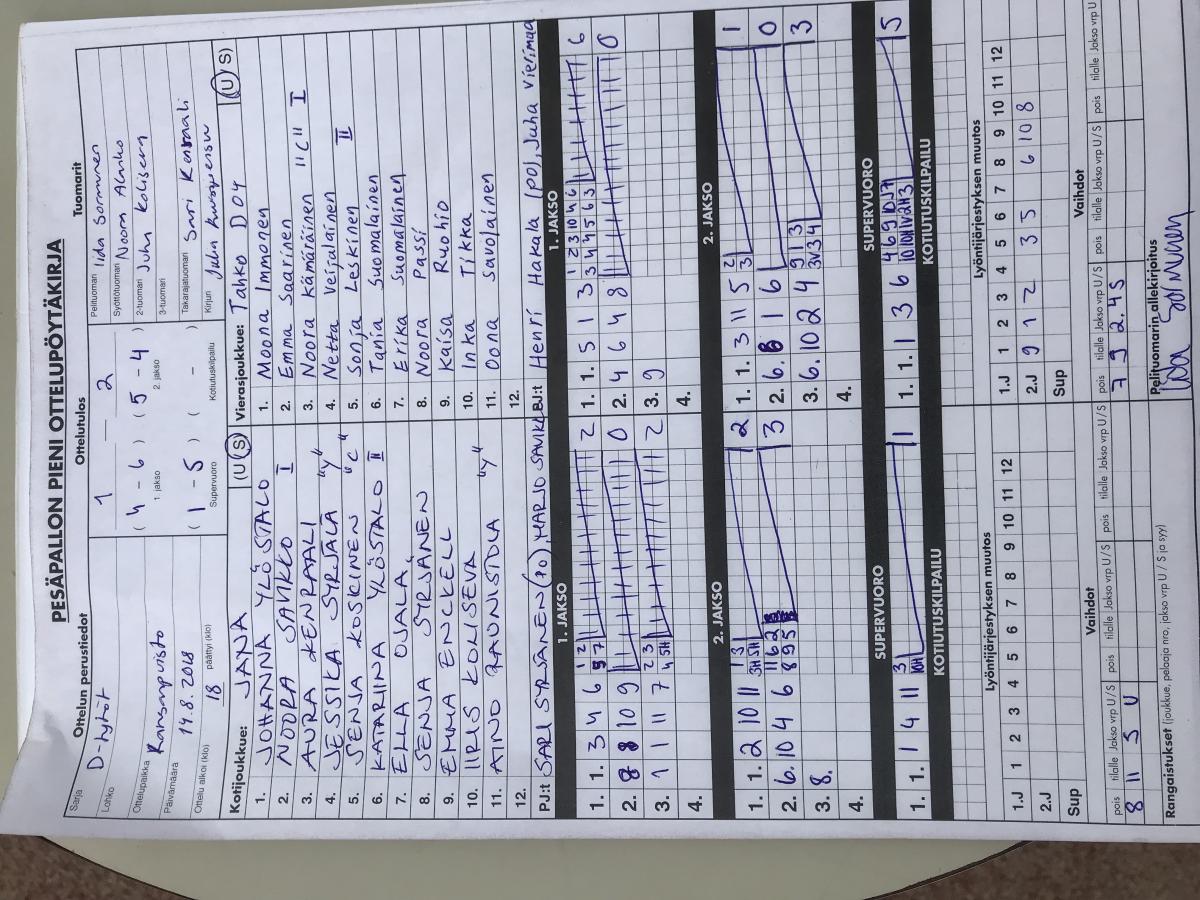 PESÄPALLON PIENI OTTELUPÖYTÄKIRJA
Ottelun perustiedot
Ottelutulos
Tuomarit
Sarja
D-tytöt
Lohko
Ottelupaikka
Päivämäärä
14.8.2018
Ottelu alkoi (klo) 18 päättyi (klo)
1 2
( 4 - 6 ) ( 5 - 4 )
1. jakso 2. jakso
( 1 - 5 ) ( - )
Supervuoro Kotiutuskilpailu
Pelituomari Iida Sormunen
Syöttötuomari Noora Alanko
2-tuomari Juha Kolisem
3-tuomari
Takarajatuomari Sari
Kirjuri Juha
Kotijoukkue: JANA (U/S)
1. JOHANNA YLÖSTALO
2. NOORA SAVIKKO I
3. AURA KENRAALI
4. JESSIKA SYRJÄLÄ "y"
5. SENJA KOSKINEN "C"
6. KATARIINA YLÖSTALO II
7. ELLA OJALA
8. SENJA SYRJÄNEN
9. EMMA ENCKELL
10. IIRIS KOLISEVA
11. AINO RAUNISTOLA "y"
12.
PJ:t SARI SYRJÄNEN (PO), MARJO
Vierasjoukkue: Tahko D04 (U/S)
1. Moona Immonen
2. Emma Saarinen
3. Noora Kämäräinen "C" I
4. Netta Veijalainen
5. Sonja Leskinen II
6. Tanja Suomalainen
7. Erika Suomalainen
8. Noora Passi
9. Kaisa Ruohio
10. Inka Tikka
11. Oona Savolainen
12.
PJ:t Henri Hakala (PO), Juha Vierimaa
1. JAKSO
1. 1. 3 4 6 2
2. 8 8 10 9 0
3. 1 11 7 2
4.
2. JAKSO
1. 1. 2 10 11 2
2. 6. 10 4 6 3
3. 8.
4.
SUPERVUORO
1. 1. 1 4 11 1
KOTIUTUSKILPAILU
1. JAKSO
1. 1. 5 1 3 6
2. 4 6 4 8 0
3. 9
4.
2. JAKSO
1. 1. 3 11 5 1
2. 6. 8 1 6 0
3. 6. 10 2 4 3
4.
SUPERVUORO
1. 1. 1 3 6 5
KOTIUTUSKILPAILU
Lyöntijärjestyksen muutos
1.J 1 2 3 4 5 6 7 8 9 10 11 12
2.J
Sup
Vaihdot
pois tilalle Jakso vrp U/S pois tilalle Jakso vrp U/S pois tilalle Jakso vrp U/S
8 11 S U
Lyöntijärjestyksen muutos
1.J 1 2 3 4 5 6 7 8 9 10 11 12
2.J 9 1 2 3 5 6 10 8
Sup
Vaihdot
pois tilalle Jakso vrp U/S pois tilalle Jakso vrp U/S pois tilalle Jakso vrp U
7 9 2. 4 S
Rangaistukset (joukkue, pelaaja nro, jakso, vrp U / S ja syy)
Pelituomarin allekirjoitus
Iida Sormunen